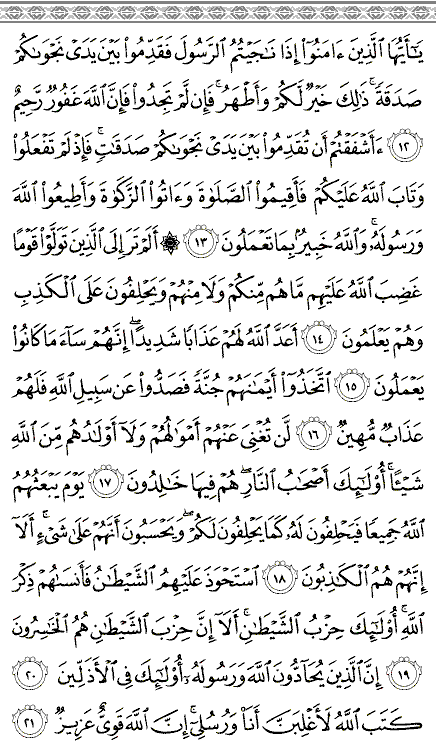 يَٰٓأَيُّهَا ٱلَّذِينَ ءَامَنُوٓاْ إِذَا نَٰجَيْتُمُ ٱلرَّسُولَ فَقَدِّمُواْ بَيْنَ يَدَىْ نَجْوَىٰكُمْ
صَدَقَةً ۚ ذَٰلِكَ خَيْرٌ لَّكُمْ وَأَطْهَرُ ۚ فَإِن لَّمْ تَجِدُواْ فَإِنَّ ٱللَّهَ غَفُورٌ رَّحِيمٌ
﴿١٢﴾ ءَأَشْفَقْتُمْ أَن تُقَدِّمُواْ بَيْنَ يَدَىْ نَجْوَىٰكُمْ صَدَقَٰتٍ ۚ فَإِذْ لَمْ تَفْعَلُواْ
وَتَابَ ٱللَّهُ عَلَيْكُمْ فَأَقِيمُواْ ٱلصَّلَوٰةَ وَءَاتُواْ ٱلزَّكَوٰةَ وَأَطِيعُواْ ٱللَّهَ
وَرَسُولَهُۥ ۚ وَٱللَّهُ خَبِيرٌۢ بِمَا تَعْمَلُونَ ﴿١٣﴾ ۞ أَلَمْ تَرَ إِلَى ٱلَّذِينَ تَوَلَّوْاْ قَوْمًا
غَضِبَ ٱللَّهُ عَلَيْهِم مَّا هُم مِّنكُمْ وَلَا مِنْهُمْ وَيَحْلِفُونَ عَلَى ٱلْكَذِبِ
وَهُمْ يَعْلَمُونَ ﴿١٤﴾ أَعَدَّ ٱللَّهُ لَهُمْ عَذَابًا شَدِيدًا ۖ إِنَّهُمْ سَآءَ مَا كَانُواْ
يَعْمَلُونَ ﴿١٥﴾ ٱتَّخَذُوٓاْ أَيْمَٰنَهُمْ جُنَّةً فَصَدُّواْ عَن سَبِيلِ ٱللَّهِ فَلَهُمْ
عَذَابٌ مُّهِينٌ ﴿١٦﴾ لَّن تُغْنِىَ عَنْهُمْ أَمْوَٰلُهُمْ وَلَآ أَوْلَٰدُهُم مِّنَ ٱللَّهِ
شَيْـًٔا ۚ أُوْلَٰٓئِكَ أَصْحَٰبُ ٱلنَّارِ ۖ هُمْ فِيهَا خَٰلِدُونَ ﴿١٧﴾ يَوْمَ يَبْعَثُهُمُ
ٱللَّهُ جَمِيعًا فَيَحْلِفُونَ لَهُۥ كَمَا يَحْلِفُونَ لَكُمْ ۖ وَيَحْسَبُونَ أَنَّهُمْ عَلَىٰ شَىْءٍ ۚ أَلَآ
إِنَّهُمْ هُمُ ٱلْكَٰذِبُونَ ﴿١٨﴾ ٱسْتَحْوَذَ عَلَيْهِمُ ٱلشَّيْطَٰنُ فَأَنسَىٰهُمْ ذِكْرَ
ٱللَّهِ ۚ أُوْلَٰٓئِكَ حِزْبُ ٱلشَّيْطَٰنِ ۚ أَلَآ إِنَّ حِزْبَ ٱلشَّيْطَٰنِ هُمُ ٱلْخَٰسِرُونَ
﴿١٩﴾ إِنَّ ٱلَّذِينَ يُحَآدُّونَ ٱللَّهَ وَرَسُولَهُۥٓ أُوْلَٰٓئِكَ فِى ٱلْأَذَلِّينَ ﴿٢٠﴾
كَتَبَ ٱللَّهُ لَأَغْلِبَنَّ أَنَا۠ وَرُسُلِىٓ ۚ إِنَّ ٱللَّهَ قَوِىٌّ عَزِيزٌ ﴿٢١﴾